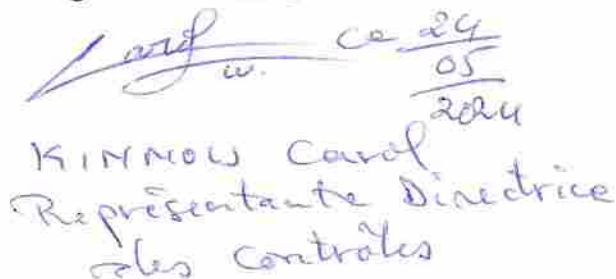 Carol w. ce 24
05
2024
KINMOW Carol
Représentante Directrice
des Contrôles